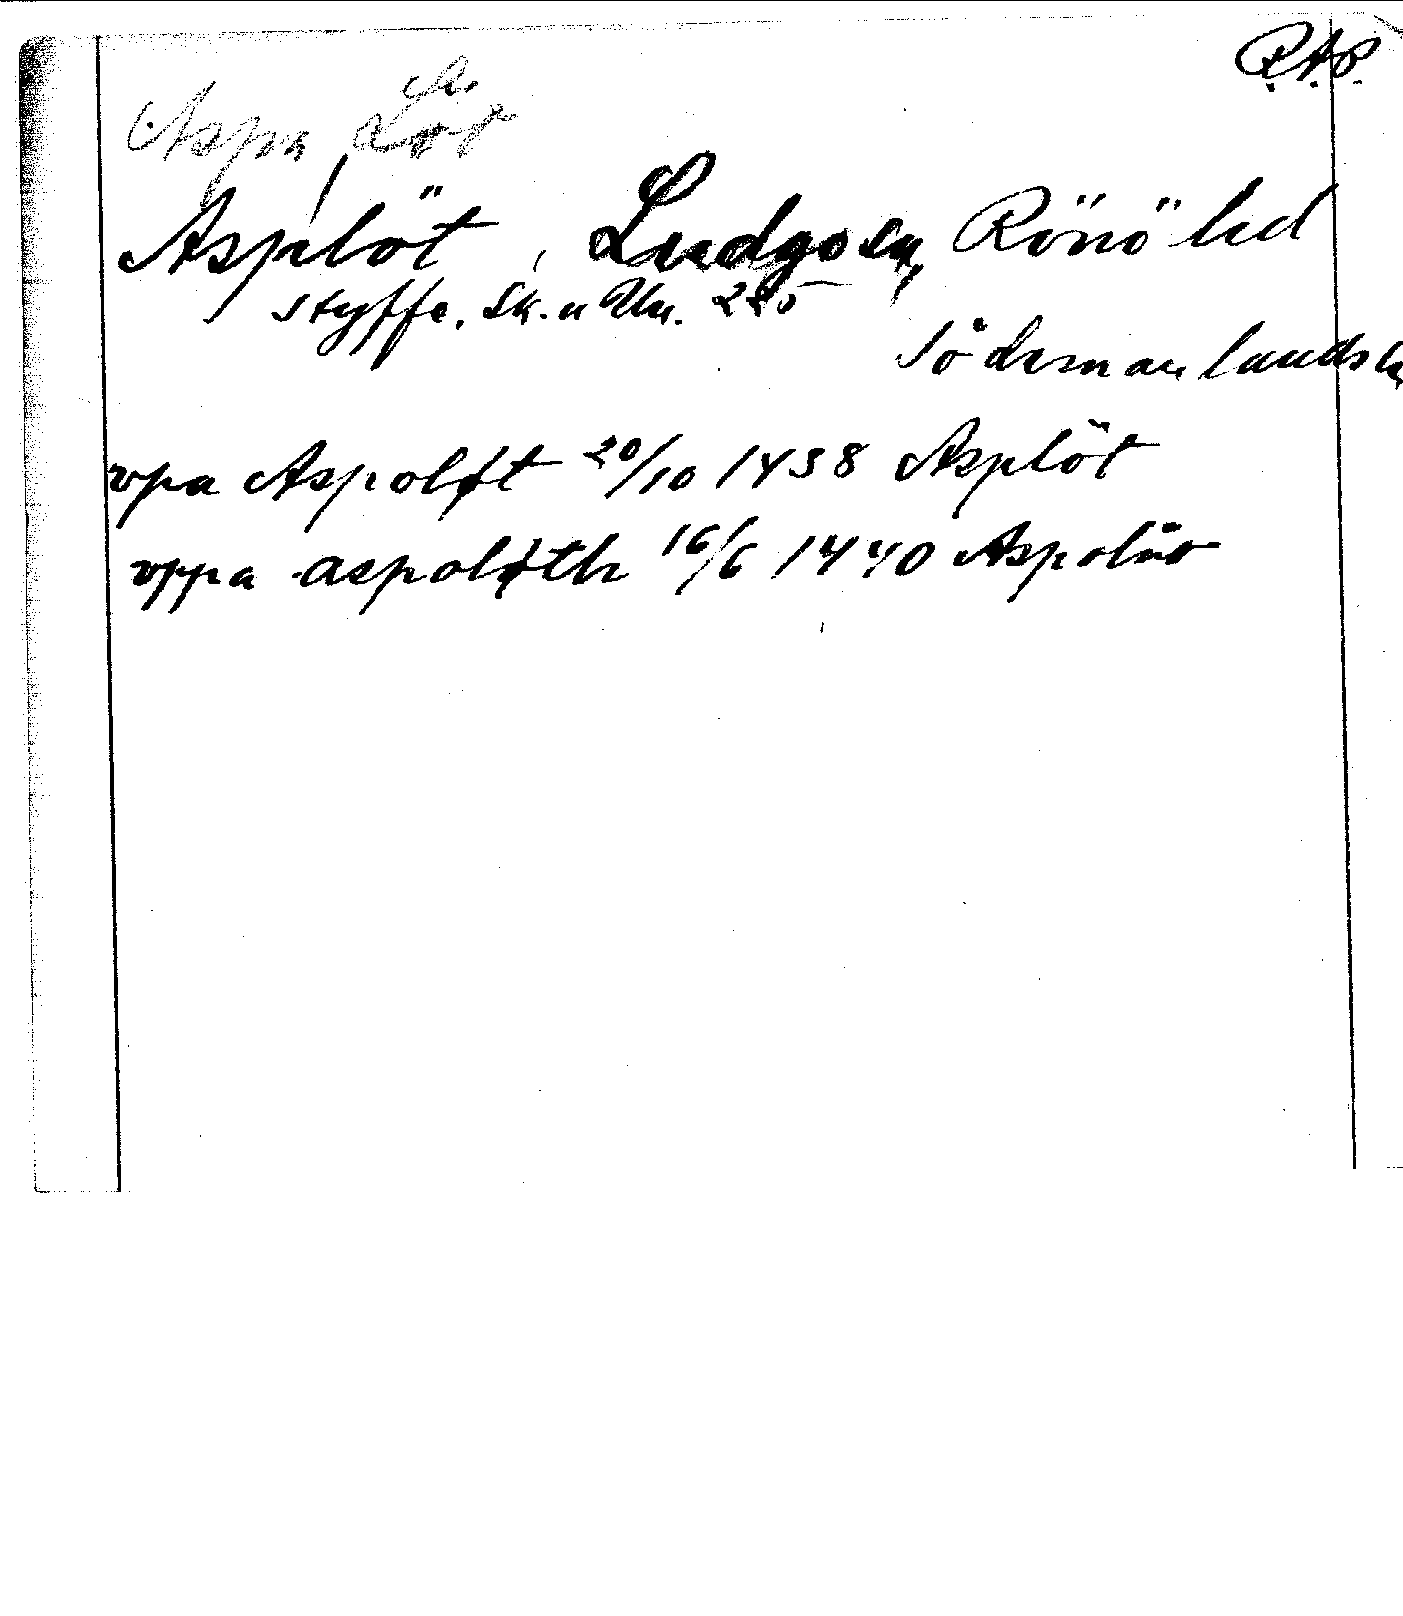 R.A.P.
Aspa Löt
Asplöt, Ludgosn, Rönö hd
Styffe, Sk. u Un. 225
Södermanlands l
vpa Aspoløt 20/10 1438 Asplöt
vppa aspoløth 16/6 1440 Aspolöt